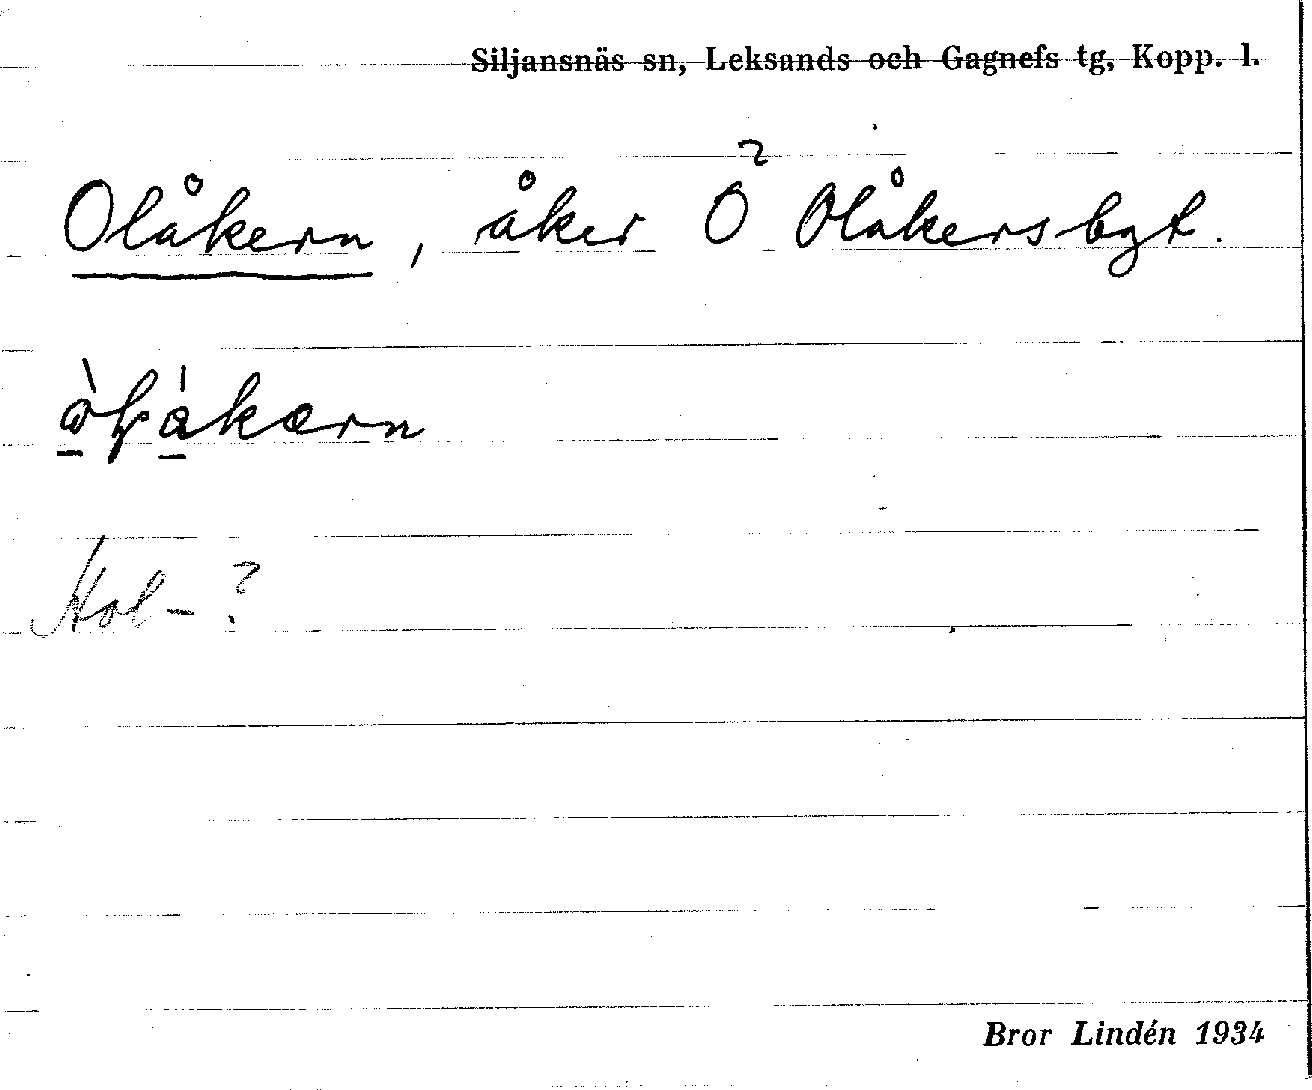 Siljansnäs sn, Leksands och Gagnefs tg, Kopp. l.
Olåkern, åker Ö Olåkersbgt.
Hol-?
Bror Lindén 1934